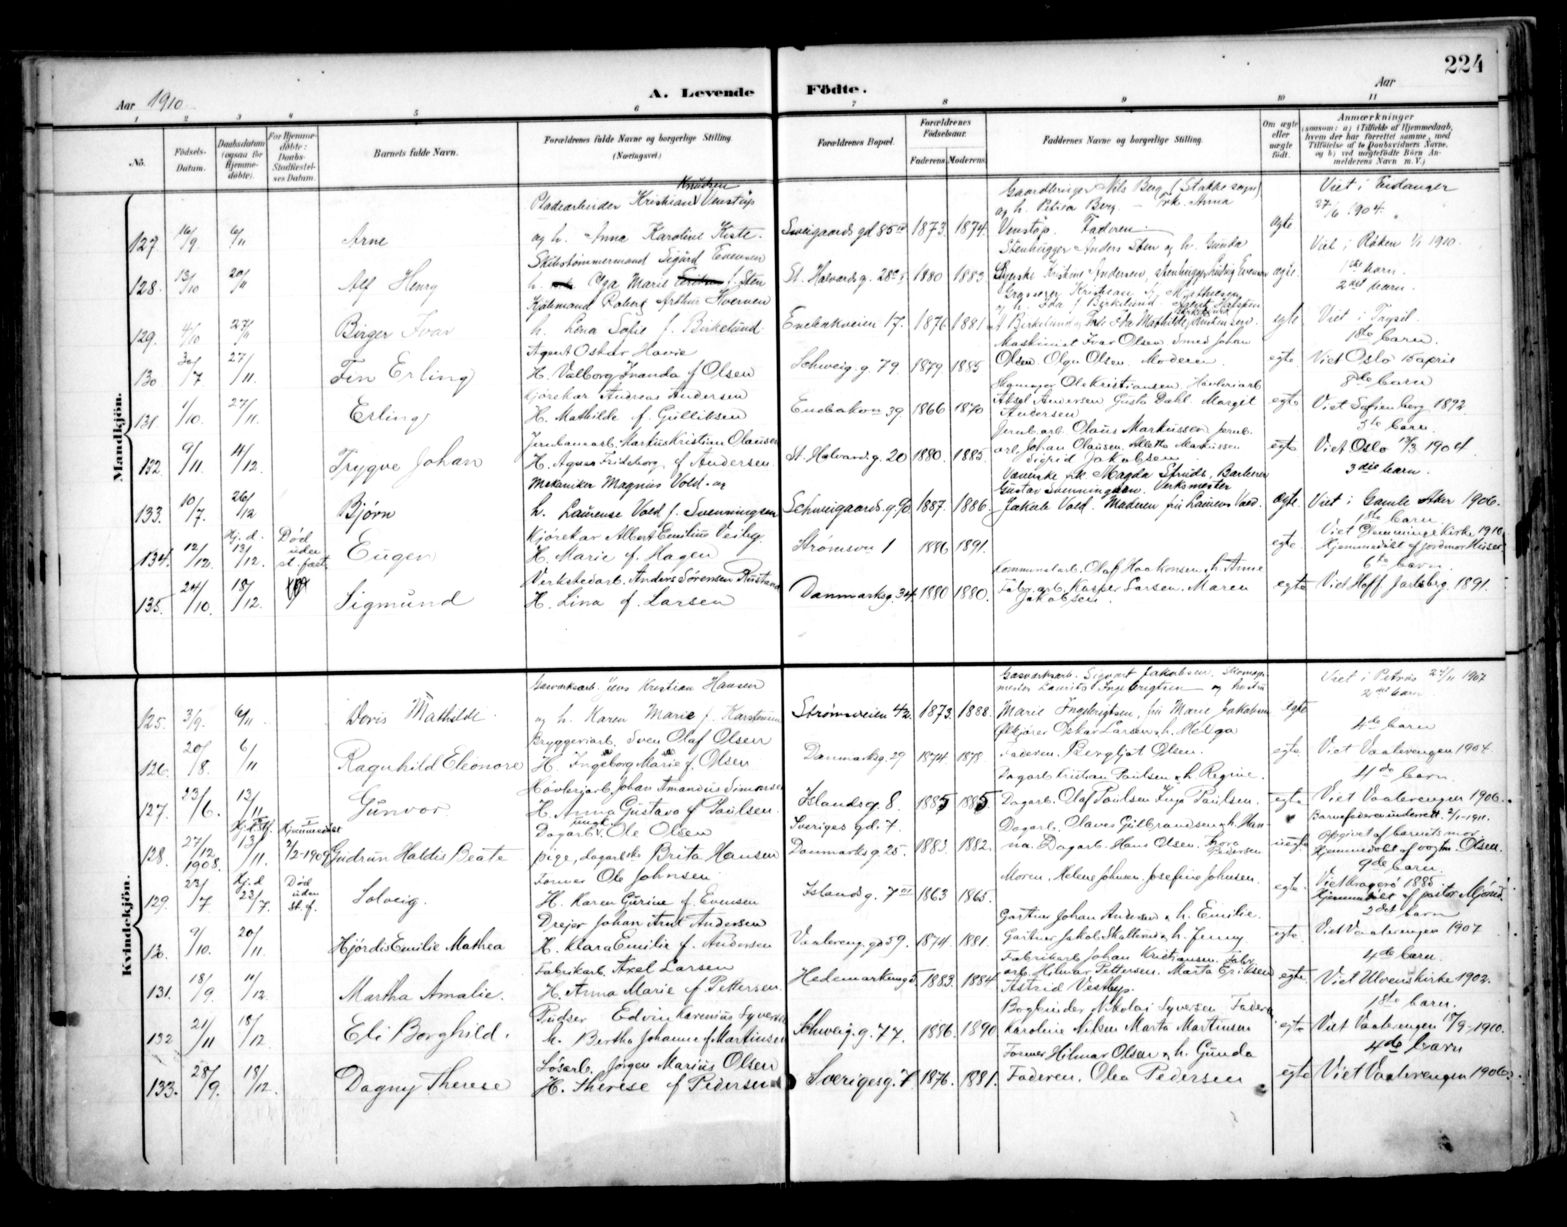 224
Aar 1910.
A. Levende Fødte.
Aar
1 2 3 4 5 6 7 8 9 10 11
No.
Fødsels-Datum.
Daabsdatum (ogsaa for Hjemme-døbte).
For Hjemme-døbte: Daabs-Stadfæstel-ses Datum.
Barnets fulde Navn.
Forældrenes fulde Navne og borgerlige Stilling (Næringsvei)
Forældrenes Bopæl.
Forældrenes Fødselsaar.
Faderens. Moderens.
Faddernes Navne og borgerlige Stilling.
Om ægte eller uægte født.
Anmærkninger
Mandkjøn.
Knudsen
Pladearbeider Kristian Venstøp
Gaardbruger Nils Berg
og h. Petrea Berg
Viet i Eidanger
27/6 1904.
127. 16/9 6/11 Arne
og h. Anna Karoline Kiste.
Sweigaards gd 85 1873. 1874.
Venstøp. Faderen.
ægte
Skibstømmermand Sigurd Evensen
Stenhugger Anders Sten og h. Gunda
Viet i Røken 1/1 1910.
1ste barn.
128. 13/10 20/11 Alf Henry
h. Olga Marie f. Sten
St. Halvards g. 28 1880 1883
ægte
2det barn.
Kjølemand Robert Arthur
129. 4/10 27/11 Birger Ivar
h. Lina Sofie f. Birkelund.
Enebakveien 17. 1876 1881
egte
Viet i Trysil
1ste barn.
Agent Oskar Havre
Maskinist Ivar Olsen Smed Johan
130 30/7 27/11. Fin Erling
H. Valborg Ivanda f Olsen
Schweig. g. 79. 1879 1885
Olsen Olga Olsen. Moderen
egte
Viet Oslo 15 april
8de barn
Kjørekar Andreas Andersen
131. 1/10. 27/11. Erling
H. Mathilde f. Gullilsen
Enebakvn 39 1866 1870
Aksel Andersen Gusta Dahl Margit
Andersen
egte
Viet Sofienberg 1892
5te barn.
Jernbanearb. Markus Kristian Olausen
Jernbarb. Olaus Markussen Jernb.
132. 9/11. 11/12. Trygve Johan
H. Agnes Frideborg f. Andersen.
St. Halvardsg. 20 1880. 1885.
arb. Johan Olausen. Aletta Markussen
Sigrid Jakobsen
egte
Viet Oslo 13/3 1904
3die barn.
Mekaniker Magnus Vold. og
133. 10/7. 26/12 Bjørn
h. Laurense Vold f. Svenningsen
Schweigaards g. 90 1887. 1886.
Gustav Svenningsen. Verksmester
Jakob Vold. Moderen frk Laurens Vold.
ægte
Viet i Gamle Aker 1906.
1ste barn.
Kjørekar Albert Emilius Veisig
134. 12/12. Hj. d. 13/12. Død uden st. fæst. Eugen
H. Marie f. Hagen
Strømsvn 1 1886 1891.
egte
Viet Grønningekirke 1910
Hjemmedøbt af jordmor Nisser
6te barn.
Verkstedarb. Anders Sörensen Rustand
Kommunearb. Olaf Haakonsen h. Anne
135. 24/10. 18/12. Sigmund
H. Lina f. Larsen
Danmarksg. 34 1880 1880.
Fabr. arb. Kasper Larsen. Maren
Jakobsen.
egte
Viet Hoff Jarlsberg. 1891.
Kvindekjøn.
Gasværksarb. Jens Kristian Hansen
Gasværksarb. Sigvart Jakobsen.
mester Laurits Ingebrigtsen og hustru
Viet i Petrus 24/11 1907
2det barn
125. 3/9. 6/11 Doris Mathilde.
og h. Karen Marie f. Karstensen
Strømsveien 42. 1873. 1888.
Marie Ingebrigtsen, frk Marie Jakobsen
egte
4de barn
Bryggeriarb. Sven Olaf Olsen
Oskar Larsen h. Helga
126. 20/8. 6/11 Ragnhild Eleonore
H. Ingeborg Marie f. Olsen
Danmarksg. 29 1874 1878.
Faderen. Bergljot Olsen.
egte
Viet Vaalerengen 1904.
4de barn.
Høvleriarb. Johan Amandus Simonsen
Dagarb Kristian Paulsen h. Regine.
127. 23/6. 13/11 Gunvor
H. Anna Gustava f Paulsen.
Islandsg. 8. 1885 1885
Dagarb. Olaf Paulsen Inga Paulsen.
egte
Viet Vaalerengen 1906.
Dagarb. ungk. Ole Olsen
Sveriges gd. 7.
Dagarb. Olaves Gulbrandsen h. Han
Barnefaderen underrett. 2/1-1911.
Opgivet af barnets mor
128. 27/12 1908. 13/11. Hjemmedøbt 2/2-1909 Gudrun Haldis Beate
pige, dagarbske Brita Hansen
Danmarks g. 25. 1883. 1882.
na. Dagarb. Hans Olsen. Thora Pedersen
uegte
Hjemmedøbt af vogtm Olsen.
9de barn.
Former Ole Johnsen
129. 22/7 Hj. d 23/7. Død uden st. f. Solveig.
H. Karen Gurine f. Evensen
Islands g. 7 1863 1865.
Moren. Helene Johnsen Josefine Johnsen
egte.
Viet Kragerø 1885
Hjemmedøbt af pastor Mjöned.
2det barn
Drejer Johan Axel Andersen
Gartner Johan Andersen h. Emilie.
130. 9/10. 20/11. Hjördis Emilie Mathea
H. Klara Emilie f. Andersen
Vaalereng. gd 59. 1874 1881.
Gartner Jakob h. Jenny
egte.
Viet Vaalerengen 1907
4de barn.
Fabrikarb. Axel Larsen
Fabrikarb Johan Kristiansen. Fabr.
131. 18/9. 11/12. Martha Amalie.
H. Anna Marie f Pettersen.
Hedemarkensg 5. 1883. 1884
arb. Hilmar Pettersen. Marta Eriksen
Astrid Vestby.
egte.
Viet Ulvenskirke 1902.
1ste barn.
Pudser Edvin Karenius Syversen
Bogbinder Nikolai Syversen Faderen
132 21/11 18/12. Eli Borghild.
h. Bertha Johanne f Martinsen
Schweig. g. 77. 1886. 1890
Karoline Nilsen Marta Martinsen
egte
Viet Vaalerengen 18/9-1910.
4de barn
Løsarb. Jørgen Marius Olsen
Former Hilmar Olsen h. Gunda
133. 28/9. 18/12. Dagny Therese
H. Therese f Pedersen
Sverigesg. 7 1876. 1881.
Faderen. Olea Pedersen
egte
Viet Vaalerengen 1906.